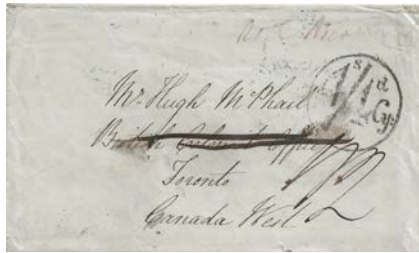 Mr Hugh McPhail
British Colonist Office
Toronto
Canada West
s d
1/1 Cy